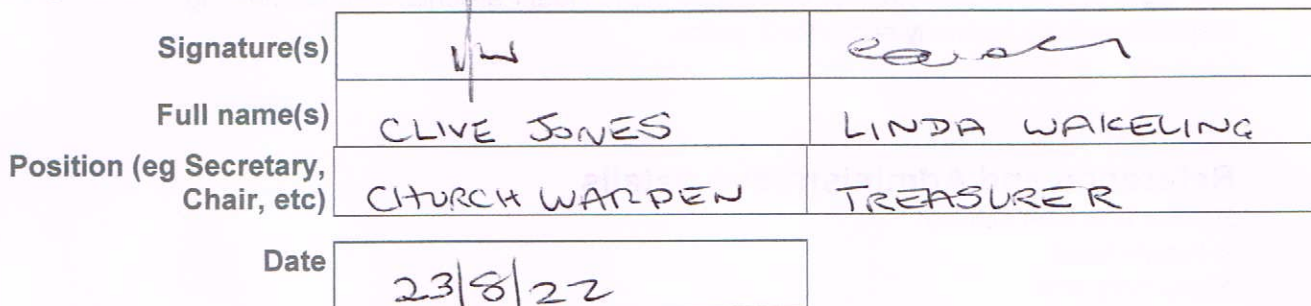 Signature(s)
Full name(s) CLIVE JONES LINDA WAKELING
Position (eg Secretary,
Chair, etc) CHURCH WARDEN TREASURER
Date 23/8/22